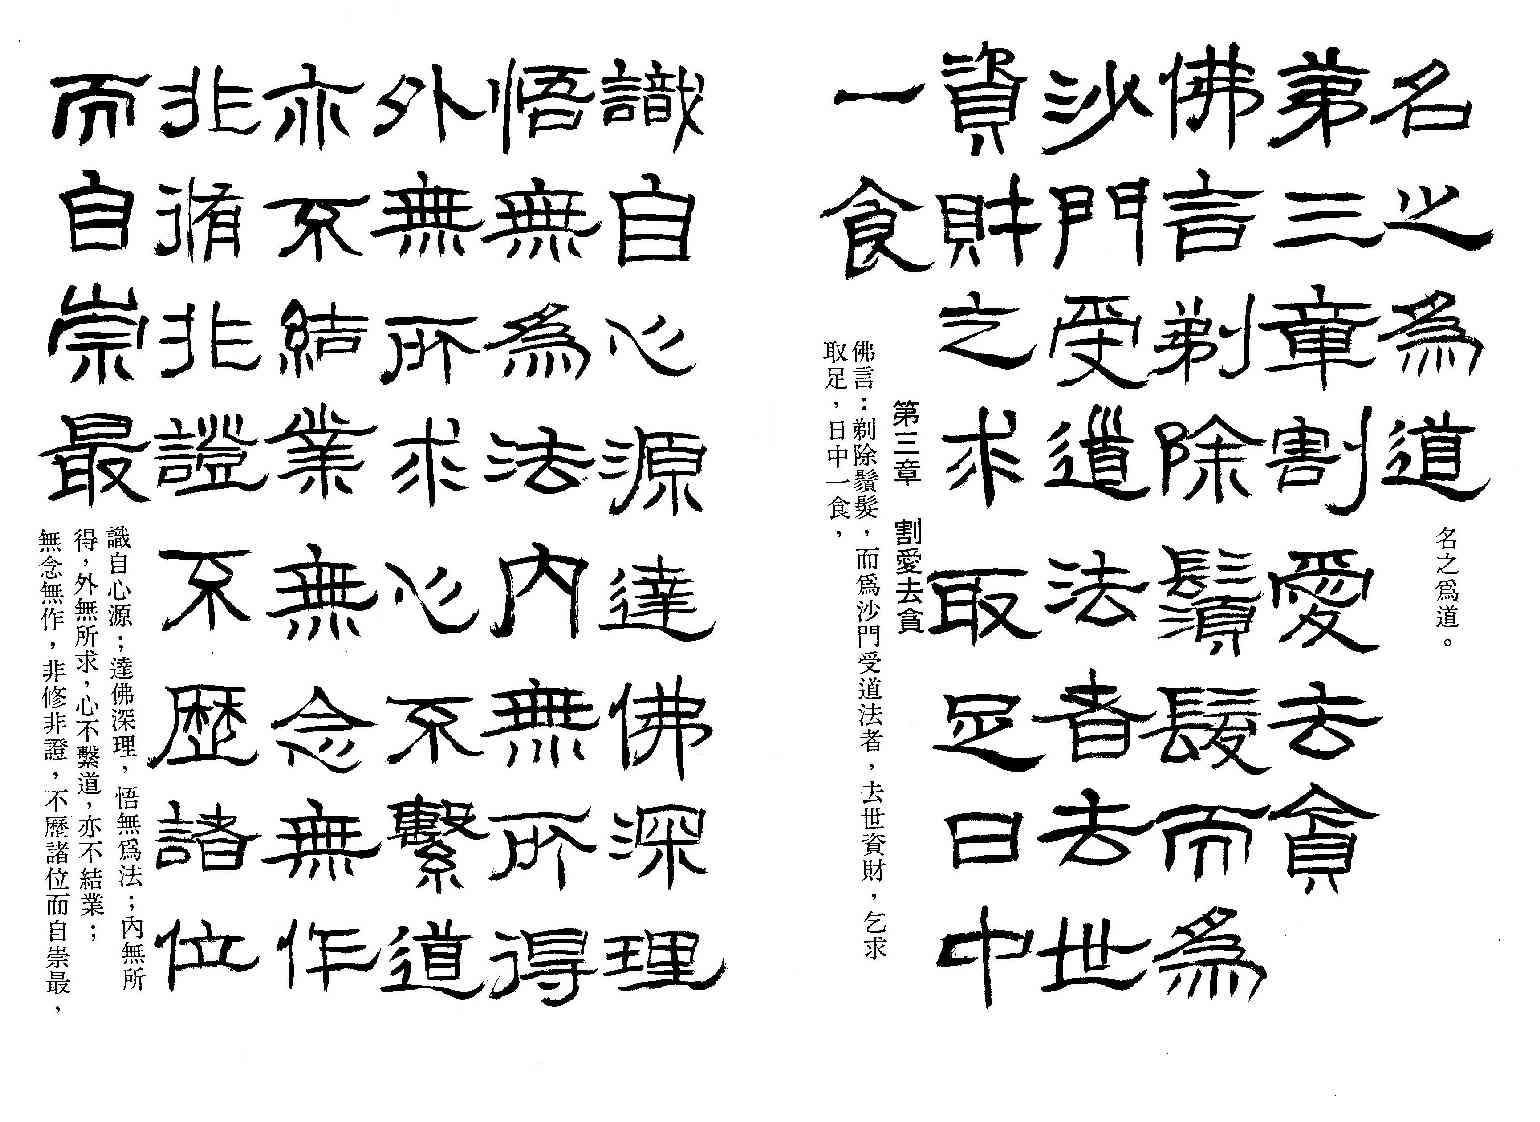 識自心源達佛深理
悟無爲法內無所得
外無所求心不繫道
亦不結業無念無作
非脩非證不歷諸位
而自崇最
識自心源；達佛深理，悟無爲法；內無所
得，外無所求，心不繫道，亦不結業；
無念無作，非修非證，不歷諸位而自崇最，
名之爲道
名之爲道。
弟三章割愛去貪
佛言剃除鬚髮而爲
沙門受道法者去世
資財之求取足日中
一食
第三章　割愛去貪
佛言：剃除鬚髮，而爲沙門受道法者，去世資財，乞求
取足，日中一食，